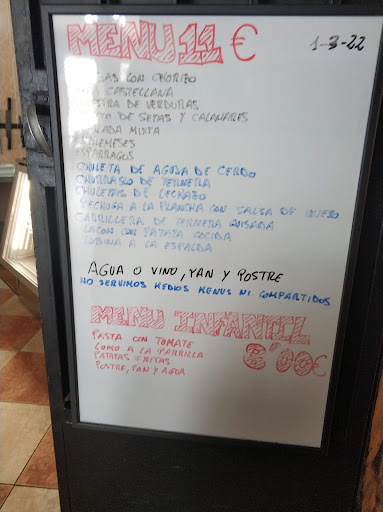 MENU 11 €
1-3-22
CON CHORIZO
CASTELLANA
DE VERDURAS
DE SETAS Y CALAMARES
MIXTA
CHULETA DE AGUJA DE CERDO
CHURRASCO DE TERNERA
CHULETAS DE LECHAZO
PECHUGA A LA PLANCHA CON SALSA DE QUESO
CARRILLERA DE TERNERA GUISADA
LACON CON PATATA COCIDA
LUBINA A LA ESPALDA
AGUA O VINO, PAN Y POSTRE
NO SERVIMOS MEDIOS MENUS NI COMPARTIDOS
MENU INFANTIL
8'00€
PASTA CON TOMATE
LOMO A LA PARRILLA
PATATAS FRITAS
POSTRE, PAN Y AGUA